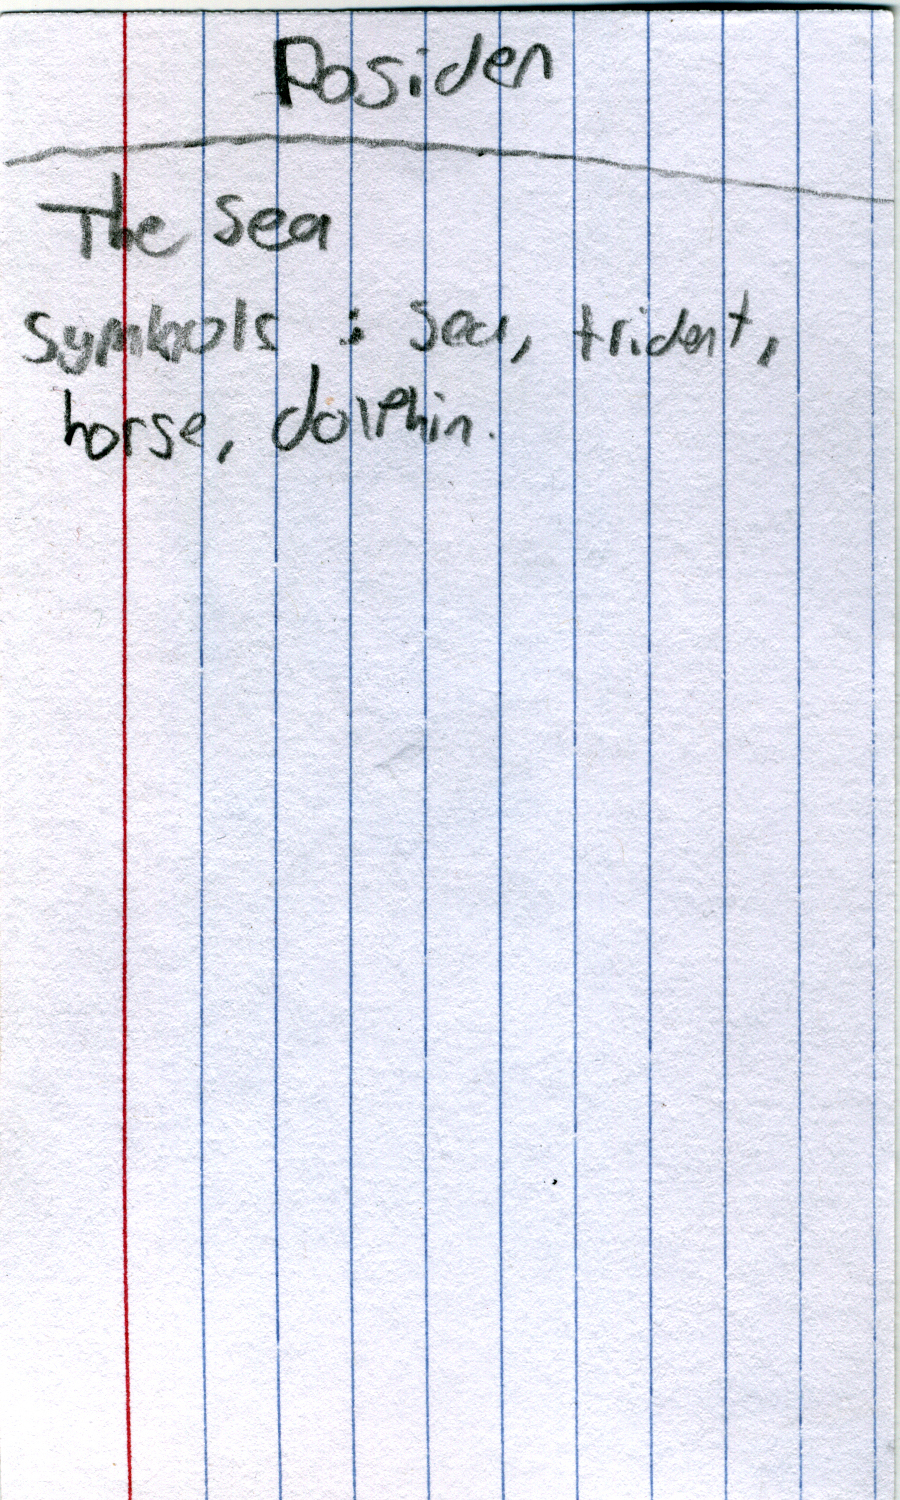 Posiden
The sea
Symbols : sea, trident,
horse, dolphin.